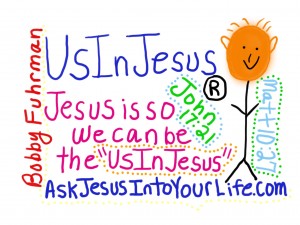 Bobby Fuhrman
UsInJesus
®
Jesus is so
we can be
the "UsInJesus"
John
17:21
Matt 10:27
AskJesusIntoYourLife.com